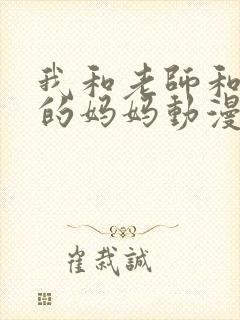 我和老師和
的妈妈動漫
崔栽誠